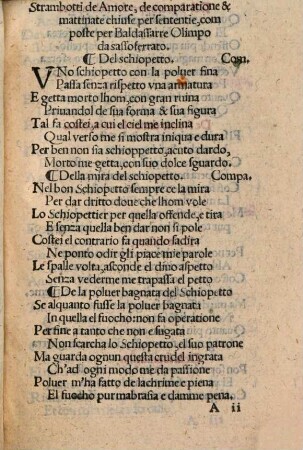 Strambotti de Amore, de comparatione &
mattinate chiuse per sententie, com
poste per Baldassarre Olimpo
da sassoferrato.
¶ Del schiopetto. Com.
VNo schiopetto con la poluer fina
Passa senza rispetto vna armatura
E getta morto lhom, con gran ruina
Priuandol de sua forma & sua figura
Tal fa costei, a cui el ciel me inclina
Qual verso me si mostra iniqua e dura
Per ben non sia schioppetto, acuto dardo,
Morto me getta, con suo dolce sguardo.
¶ Della mira del schiopetto. Compa.
Nel bon Schiopetto sempre ce la mira
Per dar dritto doue che lhom vole
Lo Schiopettier per quella offende, e tira
E senza quella ben dar non si pole
Costei el contrario fa quando sadira
Ne ponto odir gli piace mie parole
Le spalle volta, asconde el diuo aspetto
Senza vederme me trapassa el petto
¶ De la poluer bagnata del Schiopetto
Se alquanto fusse la poluer bagnata
In quella el fuocho: non fa operatione
Per fine a tanto che non e sugata
Non scarcha lo Schiopetto, el suo patrone
Ma guarda ognun questa crudel ingrata
Ch'ad ogni modo me da passione
Poluer m'ha fatto de lachrime e piena
El fuocho pur mabrasia e damme pena.
A ii